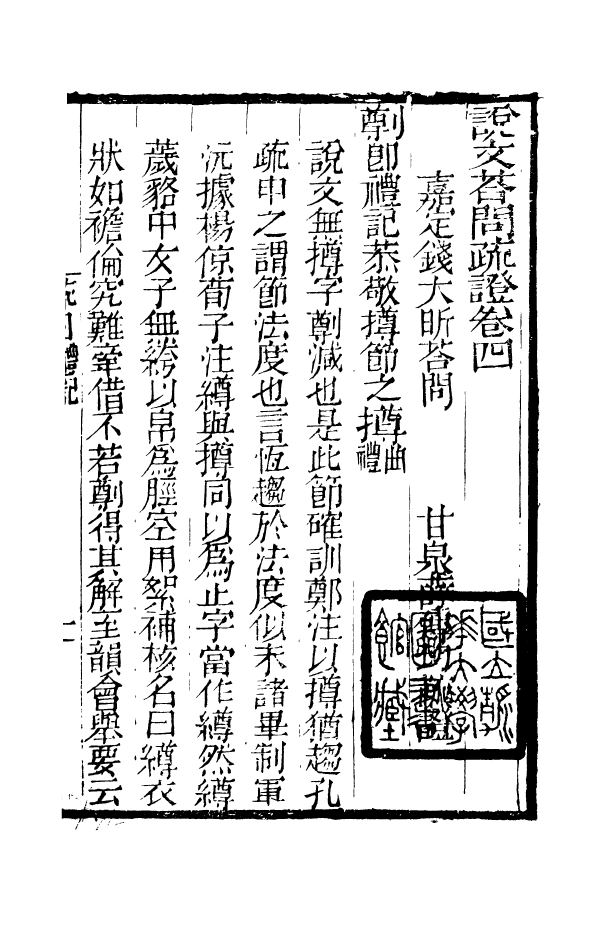 說文荅問疏證卷四
嘉定錢大昕荅問
甘泉薛
劕卽禮記恭敬撙節之撙曲禮
說文無撙字劕減也是此節確訓鄭注以撙猶趨孔
疏申之謂節法度也言恆趨於法度似未諸畢制軍
沅據楊倞荀子注繜與撙同以爲止字當作繜然繜
薉貉中女子無絝以帛爲脛空用絮補核名曰繜衣
狀如襜褕究難牽借不若劕得其解至韻會舉要云
國立
大學
館藏